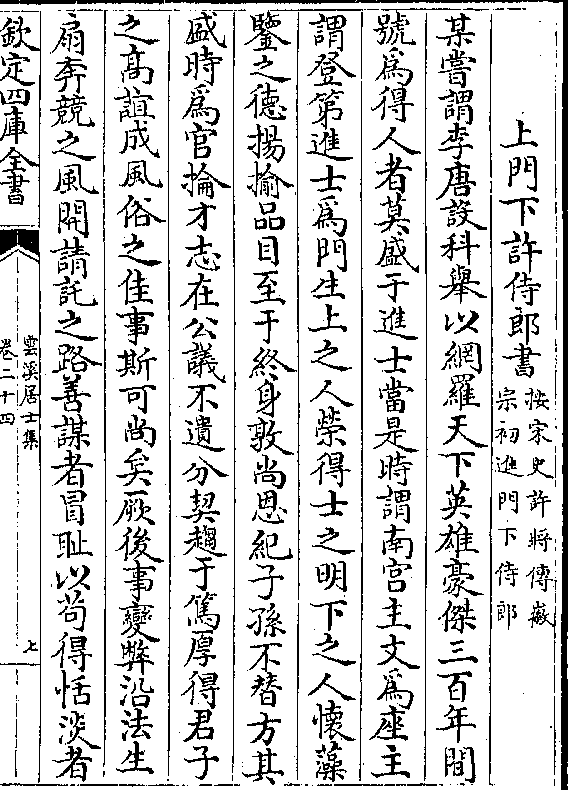 上門下許侍郎書按宋史許將傳徽
宗初進門下侍郎
某嘗謂李唐設科舉以網羅天下英雄豪傑三百年間
號爲得人者莫盛于進士當是時謂南宫主文爲座主
謂登第進士爲門生上之人榮得士之明下之人懷藻
鑒之德揚揄品目至于終身敦尚恩紀子孫不替方其
盛時爲官掄才志在公議不遺分契趨于篤厚得君子
之高誼成風俗之佳事斯可尚矣厥後事變弊沿法生
扇奔競之風開請託之路善謀者冒耻以苟得恬淡者
欽定四庫全書
雲溪居士集
卷二十四
上